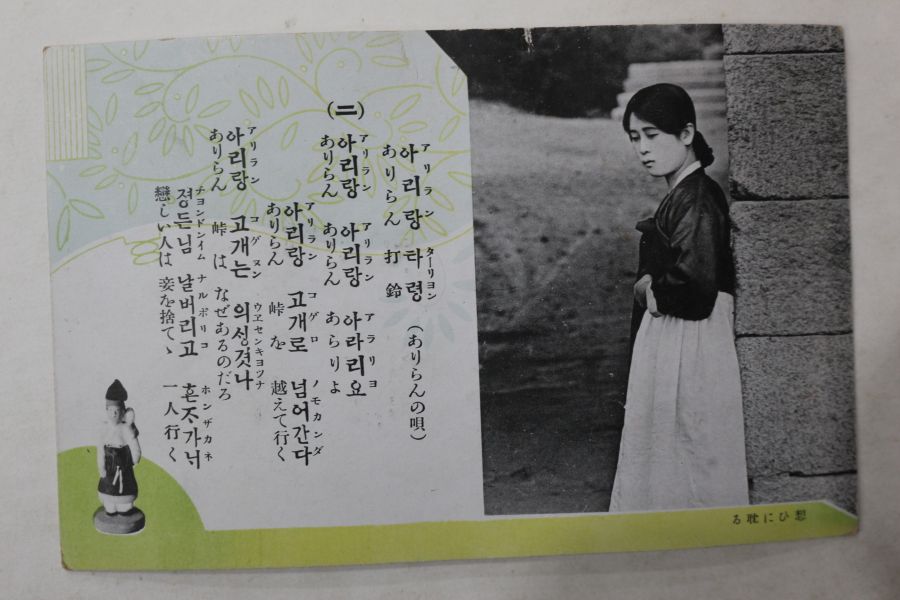 아리랑 타령 (ありらんの唄)
アリラン ターリヨン
ありらん 打鈴
(二)
아리랑 아리랑 아라리요
アリラン アリラン アラリヨ
ありらん ありらん あらりよ
아리랑 고개로 넘어간다
アリラン コゲロ ノモカンダ
ありらん 峠を 越えて行く
아리랑 고개는 의성겻나
アリラン コゲヌン ウエセンキヨツナ
ありらん 峠は なぜあるのだろ
졍든님 날버리고 혼조가니
チヨンドンイム ナルポリコ ホンザカネ
戀しい人は 妾を捨てゝ 一人行く
想ひに耽る